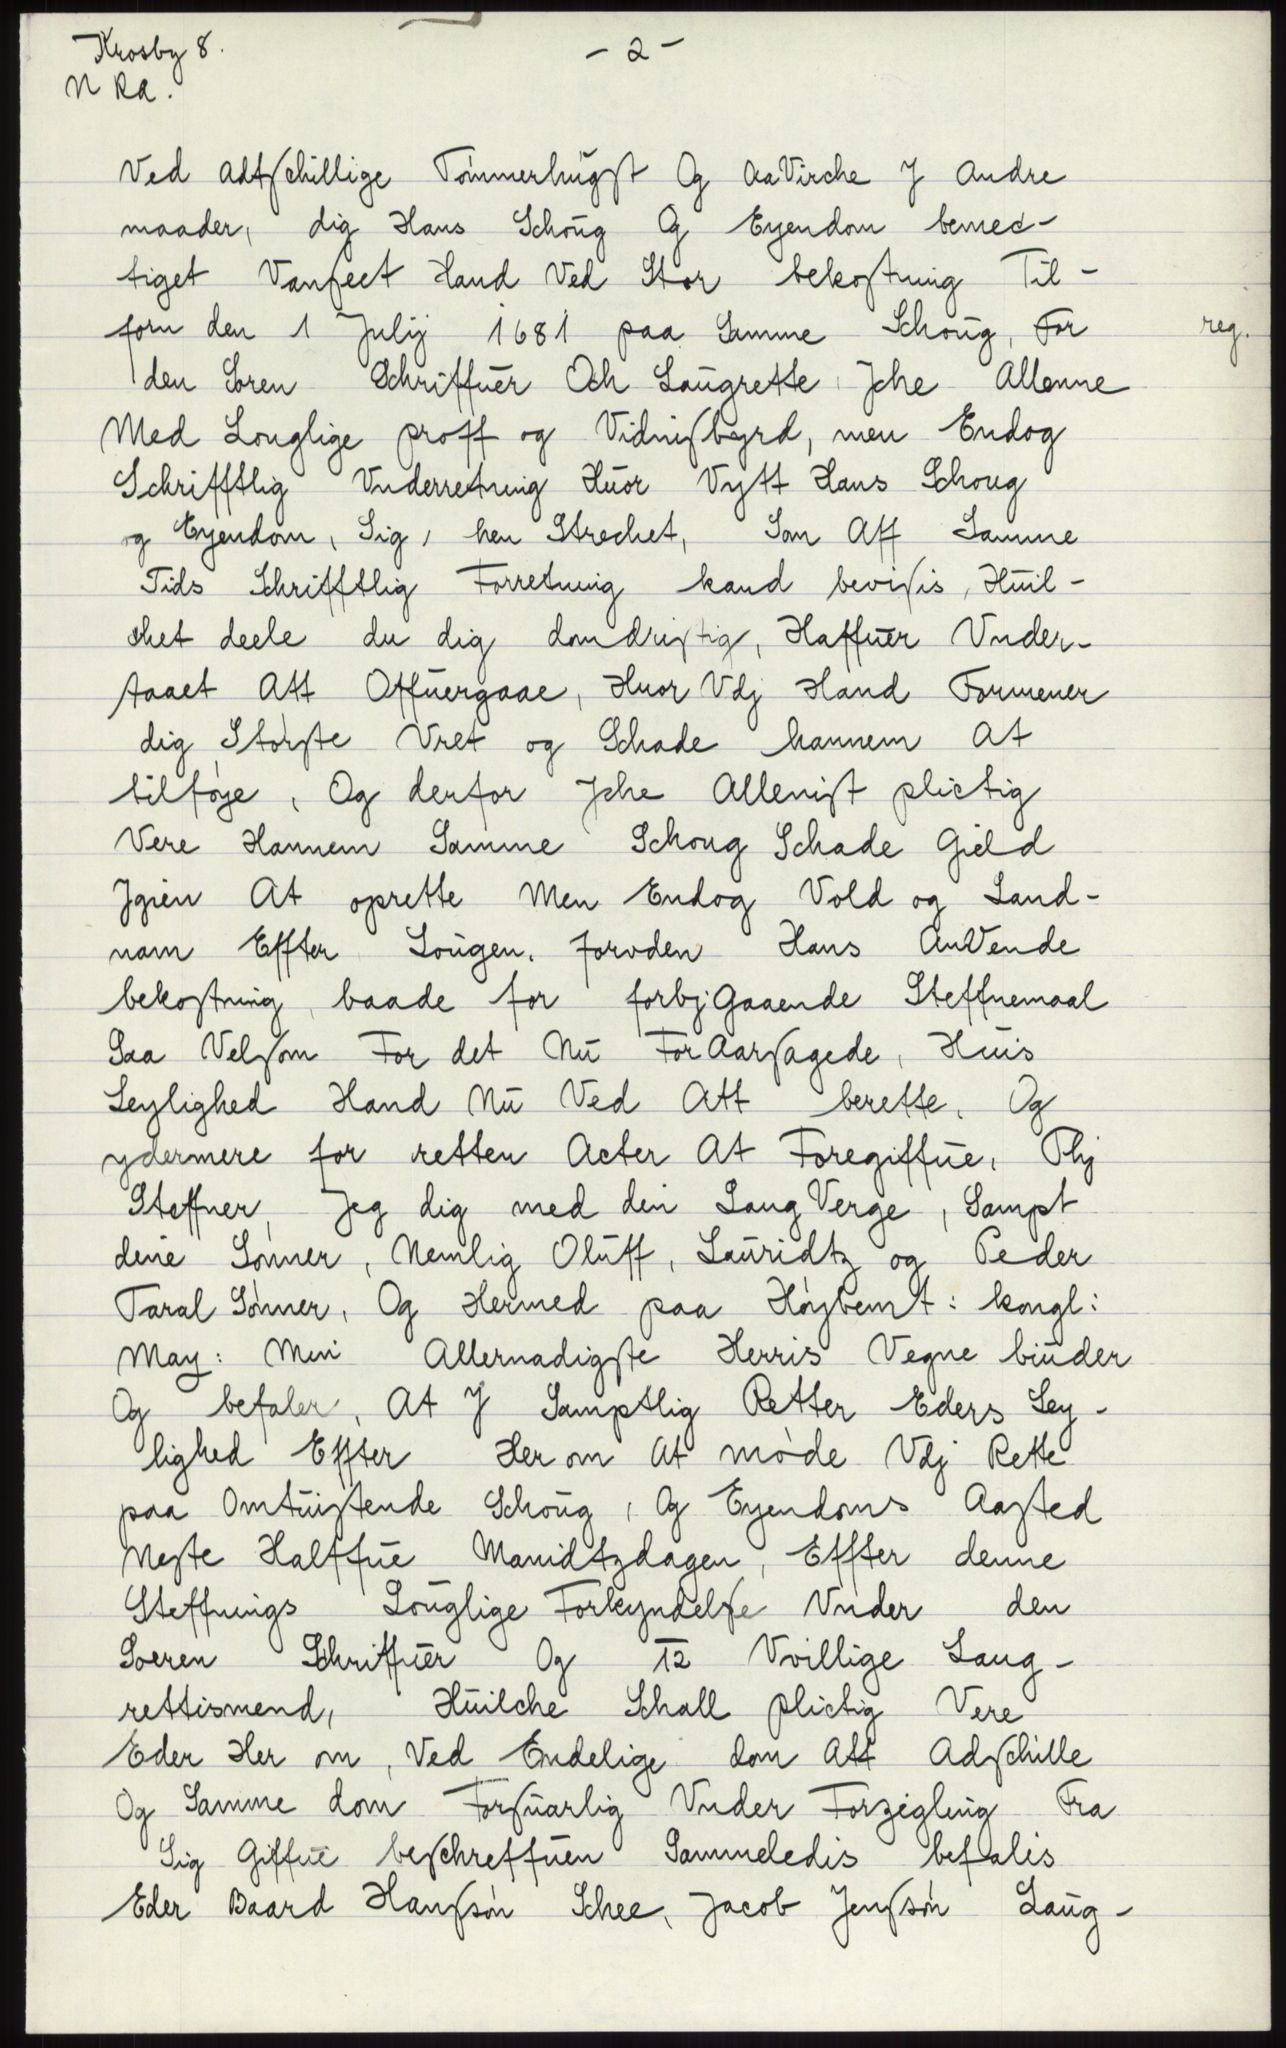 Krosby 8.
- 2 -
N RA.
Ved adtschillige Tømmerhugst Og aaVirche J Andre
maader, dig Hans Schoug Og Eyendom bemec-
tiget Vanseet Hand Ved Stor bekostning Til-
forn den 1 Julij 1681 paa Samme Schoug, For
reg.
den Soren Schriffuer Och Laugrette Jche Allenne
Med Louglige proff og Vidnisbyrd, men Endog
Schrifftlig Vnderretning Huor Vytt Hans Schoug
og Eyendom, Sig, hen Strechet, Som Aff Samme
Tids Schrifftlig Forretning kand bevisis, Huil-
chet deele du dig domdristig, Haffuer Vnder-
taaet Att Offuergaae, Huor Vdj Hand Formener
dig Største Vret og Schade hannem At
tilføye, Og derfor Jche Allenist plictig
Vere Hannem Samme Schoug Schade Gield
Jgien At oprette Men Endog Vold og Land-
nam Effter Lougen. foruden Hans AnVende
bekostning, baade for forbjGaaende Steffnemaal
Saa Velsom For det Nu ForAarsagede, Huis
Leylighed Hand Nu Ved Att berette. Og
ydermere for retten Acter At Foregiffue. Thj
Steffner, Jeg dig med din LaugVerge, Sampt
dine Sønner, Nemlig Oluff, Lauridtz og Peder
Taral Sønner, Og Hermed paa Høybemt: kongl:
May: Min Allernadigste Herris Vegne biuder
Og befaler, At J Samptlig Retter Eders Ley-
lighed Effter Her om At møde Vdj Rette
paa Omtuistende Schoug, Og Eyendoms Aasted
Neste Halffue Manidtzdagen, Effter denne
Steffnings Louglige Forkyndelse Vnder den
Soeren Schriffuer Og 12 Vvillige Laug-
rettismend, Huilche Schall plictig Vere
Eder Her om, Ved Endelige dom Att Adschille
Og Samme dom Forsuarlig Vnder Forzegling Fra
Sig Giffue beschreffuen Sammeledis befalis
Eder Baard Hansøn Schee, Jacob Jensøn Laug-